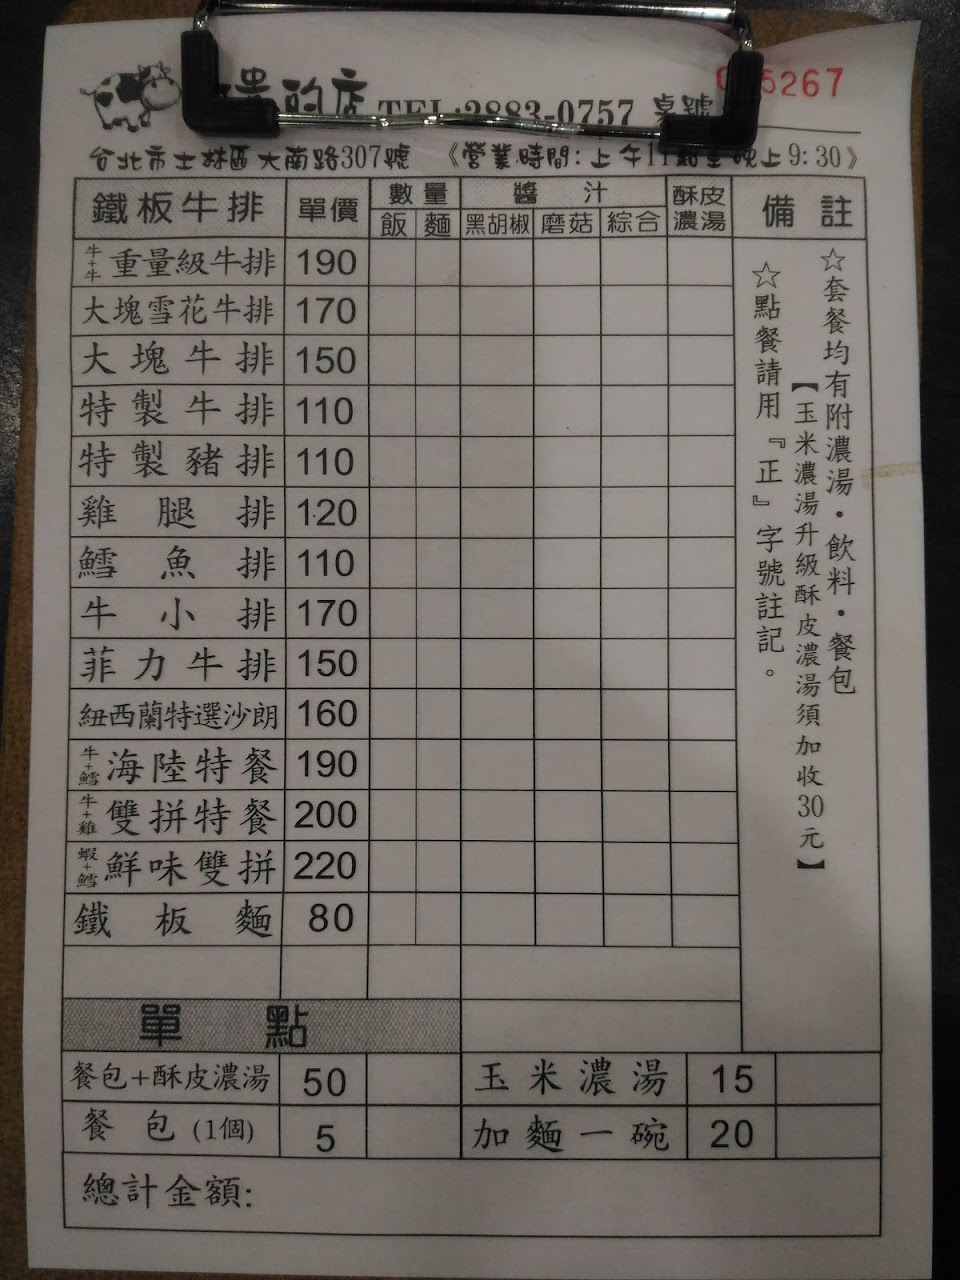 貴的店 TEL:2883-0757 桌號
5267
台北市士林區大南路307號 《營業時間:上午11點至晚上9:30》
鐵板牛排 單價 數量 醬汁 酥皮濃湯 備註
飯 麵 黑胡椒 磨菇 綜合
牛+牛 重量級牛排 190
大塊雪花牛排 170
大塊牛排 150
特製牛排 110
特製豬排 110
雞腿排 120
鱈魚排 110
牛小排 170
菲力牛排 150
紐西蘭特選沙朗 160
牛+鱈 海陸特餐 190
牛+雞 雙拼特餐 200
蝦+鱈 鮮味雙拼 220
鐵板麵 80
☆套餐均有附濃湯·飲料·餐包
【玉米濃湯升級酥皮濃湯須加收30元】
☆點餐請用『正』字號註記。
單點
餐包+酥皮濃湯 50 玉米濃湯 15
餐包(1個) 5 加麵一碗 20
總計金額: